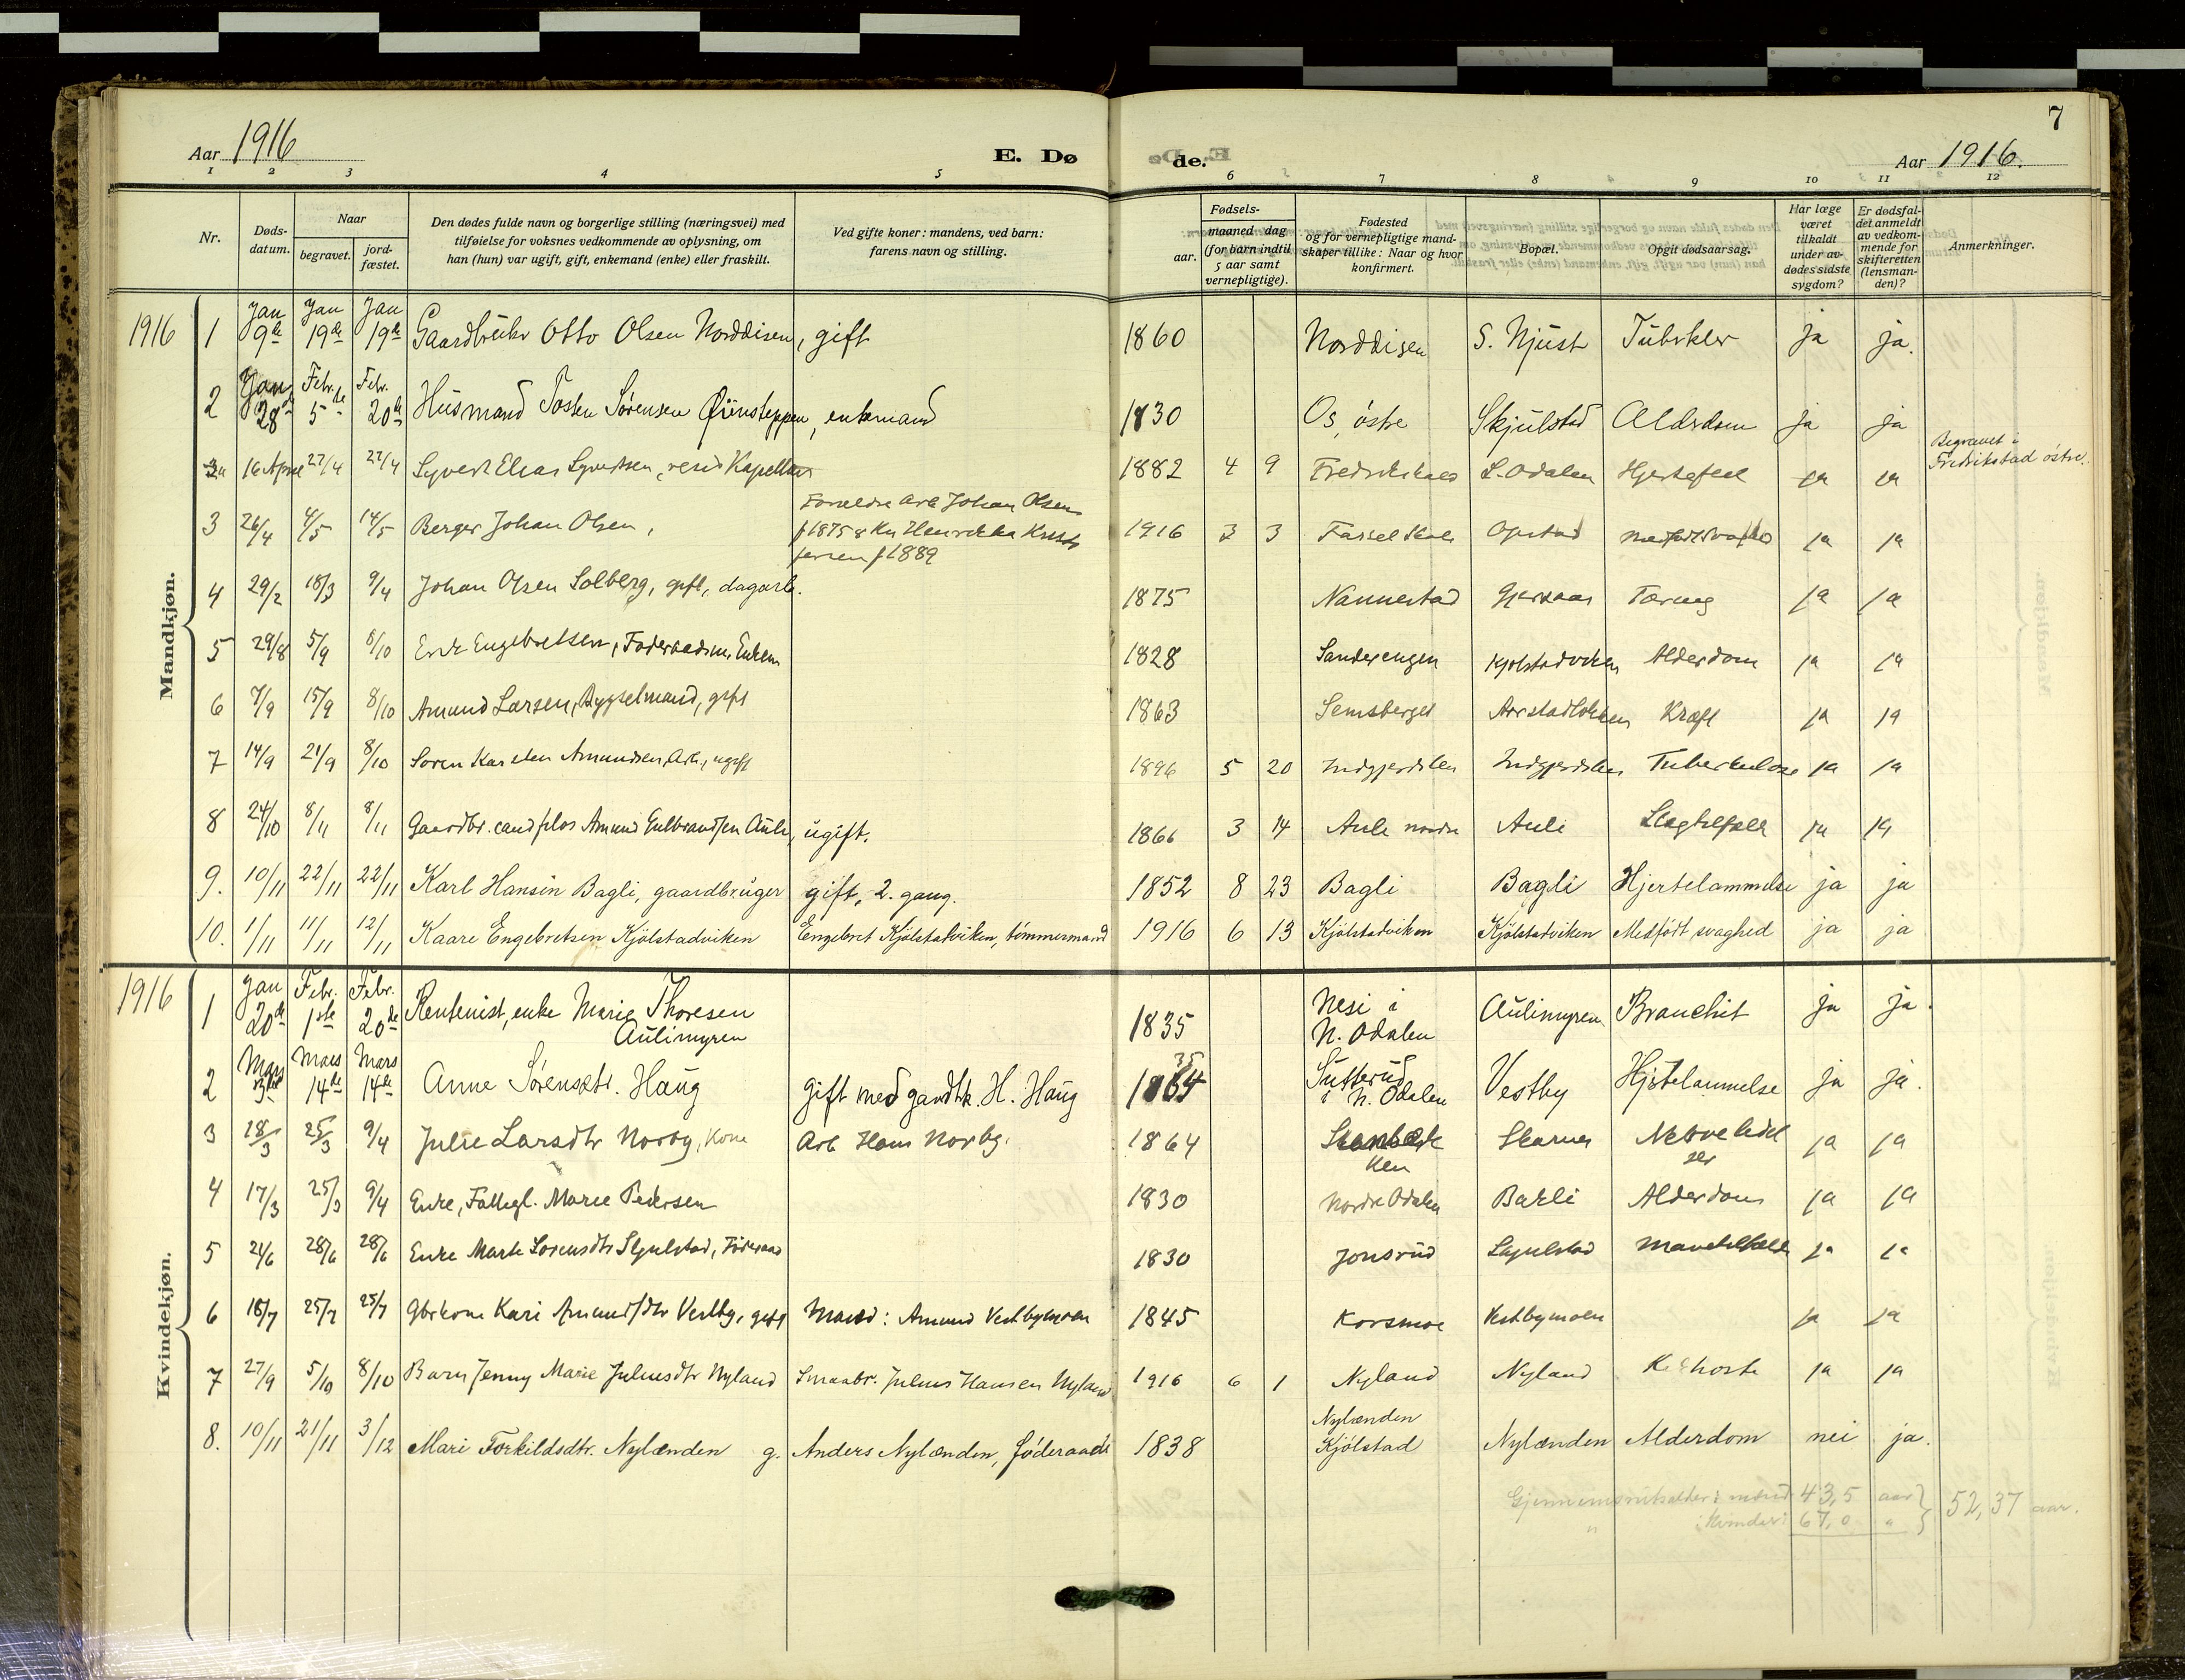 7
Aar 1916 E. Dø de. Aar 1916.
1 2 3 4 5 6 7 8 9 10 11 12
Nr. Døds-datum. Naar begravet. jord-fæstet. Den dødes fulde navn og borgerlige stilling (næringsvei) med tilføielse for voksnes vedkommende av oplysning, om han (hun) var ugift, gift, enkemand (enke) eller fraskilt. Ved gifte koner: mandens, ved barn: farens navn og stilling. Fødsels- aar. maaned dag (for barn indtil 5 aar samt vernepligtige). Fødested og for vernepligtige mand-skaper tillike: Naar og hvor konfirmert. Bopæl. Opgit dødsaarsag. Har læge været tilkaldt under av-dødes sidste sygdom? Er dødsfal-det anmeldt av vedkom-mende for skifteretten (lensman-den)? Anmerkninger.
Mandkjøn.
1916 1 Jan 9de Jan 19de Jan 19de Gaardbruker Otto Olsen Norddisen, gift 1860 Norddisen S. Njust Tuberkler ja ja.
2 Jan 28de Febr. 5te Febr. 20de Husmand Tosten Sørensen, enkemand 1830 Os, östre Skjulstad Alderdom ja ja
16 April 27/4 27/4 Syvert Elias Syvertsen, resid Kapellan 1882 4 9 Fredrikshald S. Odalen Hjertefeil ja ja Begravet i Fredrikstad östre.
3 26/4 4/5 14/5 Berger Johan Olsen, Forældre Arb Johan Olsen f 1875 & Ku Henrikka Krist fersen f 1889 1916 3 3 Opstad ja ja
4 29/2 18/3 9/4 Johan Olsen Solberg, gift, dagarb. 1875 Nannestad Tæring ja ja
5 29/8 5/9 8/10 Erik Engebretsen, Föderaadsm, Enkem 1828 Sanderengen Kjölstadviken Alderdom ja ja
6 7/9 15/9 8/10 Amund Larsen, Bygselmand, gift 1863 Semsberget Arstadlökken Kræft ja ja
7 14/9 21/9 8/10 Soren Karsten Amundsen, Arb, ugift 1896 5 20 Indgjerdslen Indgjerdslen Tuberkulose ja ja
8 24/10 8/11 8/11 Gaardbr. cand filos Amund Gulbrandsen Auli, ugift. 1866 3 14 Auli nordre Auli Slagtilfælle ja ja
9. 10/11 22/11 22/11 Karl Hansen Bagli, gaardbruger gift, 2. gang. 1852 8 23 Bagli Bagli Hjertelammelse ja ja
10. 1/11 11/11 12/11 Kaare Engebretsen Kjölstadviken Engebret Kjölstadviken, tömmermand 1916 6 13 Kjölstadviken Kjölstadviken Medfödt svaghed ja ja
Kvindekjøn.
1916 1 Jan 20de Febr. 1ste Febr. 20de Rentenist, enke Marie Thoresen Aulimyren 1835 Nesi i N. Odalen Aulimyren Bronchit ja ja.
2 Mars 3de Mars 14de Mars 14de Anne Sørensdtr. Haug Gift med gaardbr. H. Haug 1864 35 Sutterud i N. Odalen Vestby Hjertelammelse ja ja.
3 18/3 25/3 9/4 Julie Larsdtr Norby, Kone Arb Hans Norby. 1864 Skarnes ja ja
4 17/3 25/3 9/4 Enke, Fattigl. Marie Pedersen 1830 Nordre Odalen Bakli Alderdom ja ja
5 24/6 28/6 28/6 Enke Marte Sorensdtr Skjulstad, Föderaad 1830 Jonsrud Skjulstad ja ja
6 16/7 25/7 25/7 Gbrkone Kari Amundsdtr Vestby, gift Mand: Amund Vestbymoen 1845 Korsmoe Vestbymoen ja ja
7 27/9 5/10 8/10 Barn Jenny Marie Juliusdtr Nyland Smaabr. Julius Hansen Nyland 1916 6 1 Nyland Nyland Kighoste ja ja
8. 10/11 21/11 3/12 Mari Torkildsdtr. Nylænden g. Anders Nylænden, föderaads 1838 Nylænden Kjölstad Nylænden Alderdom nei ja.
Gjennemsnitsalder: mænd 43,5 aar } 52,37 aar.
" : kvinder: 67,0 " }